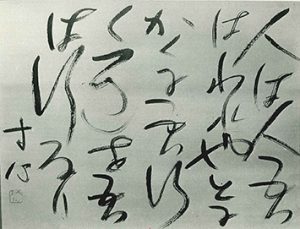 人は人吾
はわれ也とに
かくに吾行
く道を吾
は行なり
寸心